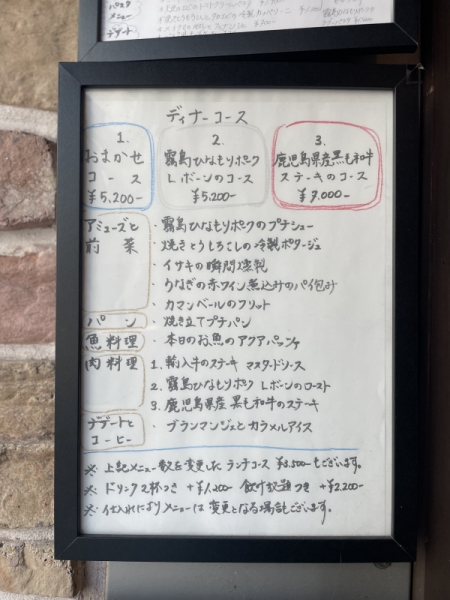 パスタ
メニュー
デザート
ディナーコース
1.
おまかせ
コース
¥5,200-
2.
霧島ひなもりポーク
Lボーンのコース
¥5,200-
3.
鹿児島県産黒毛和牛
ステーキのコース
¥7,000-
アミューズと
前菜
・霧島ひなもりポークのプチシュー
・焼きとうもろこしの冷製ポタージュ
・イサキの瞬間燻製
・うなぎの赤ワイン煮込みのパイ包み
・カマンベールのフリット
パン
・焼き立てプチパン
魚料理
・本日のお魚のアクアパッツァ
肉料理
1.輸入牛のステーキ マスタードソース
2.霧島ひなもりポーク Lボーンのロースト
3.鹿児島県産黒毛和牛のステーキ
デザートと
コーヒー
・ブランマンジェとカラメルアイス
※上記メニュー数を変更したランチコース ¥3,500-もございます。
※ドリンク2杯つき +¥1,200- 飲み放題つき +¥2,200-
※仕入れによりメニューは変更となる場合もございます。